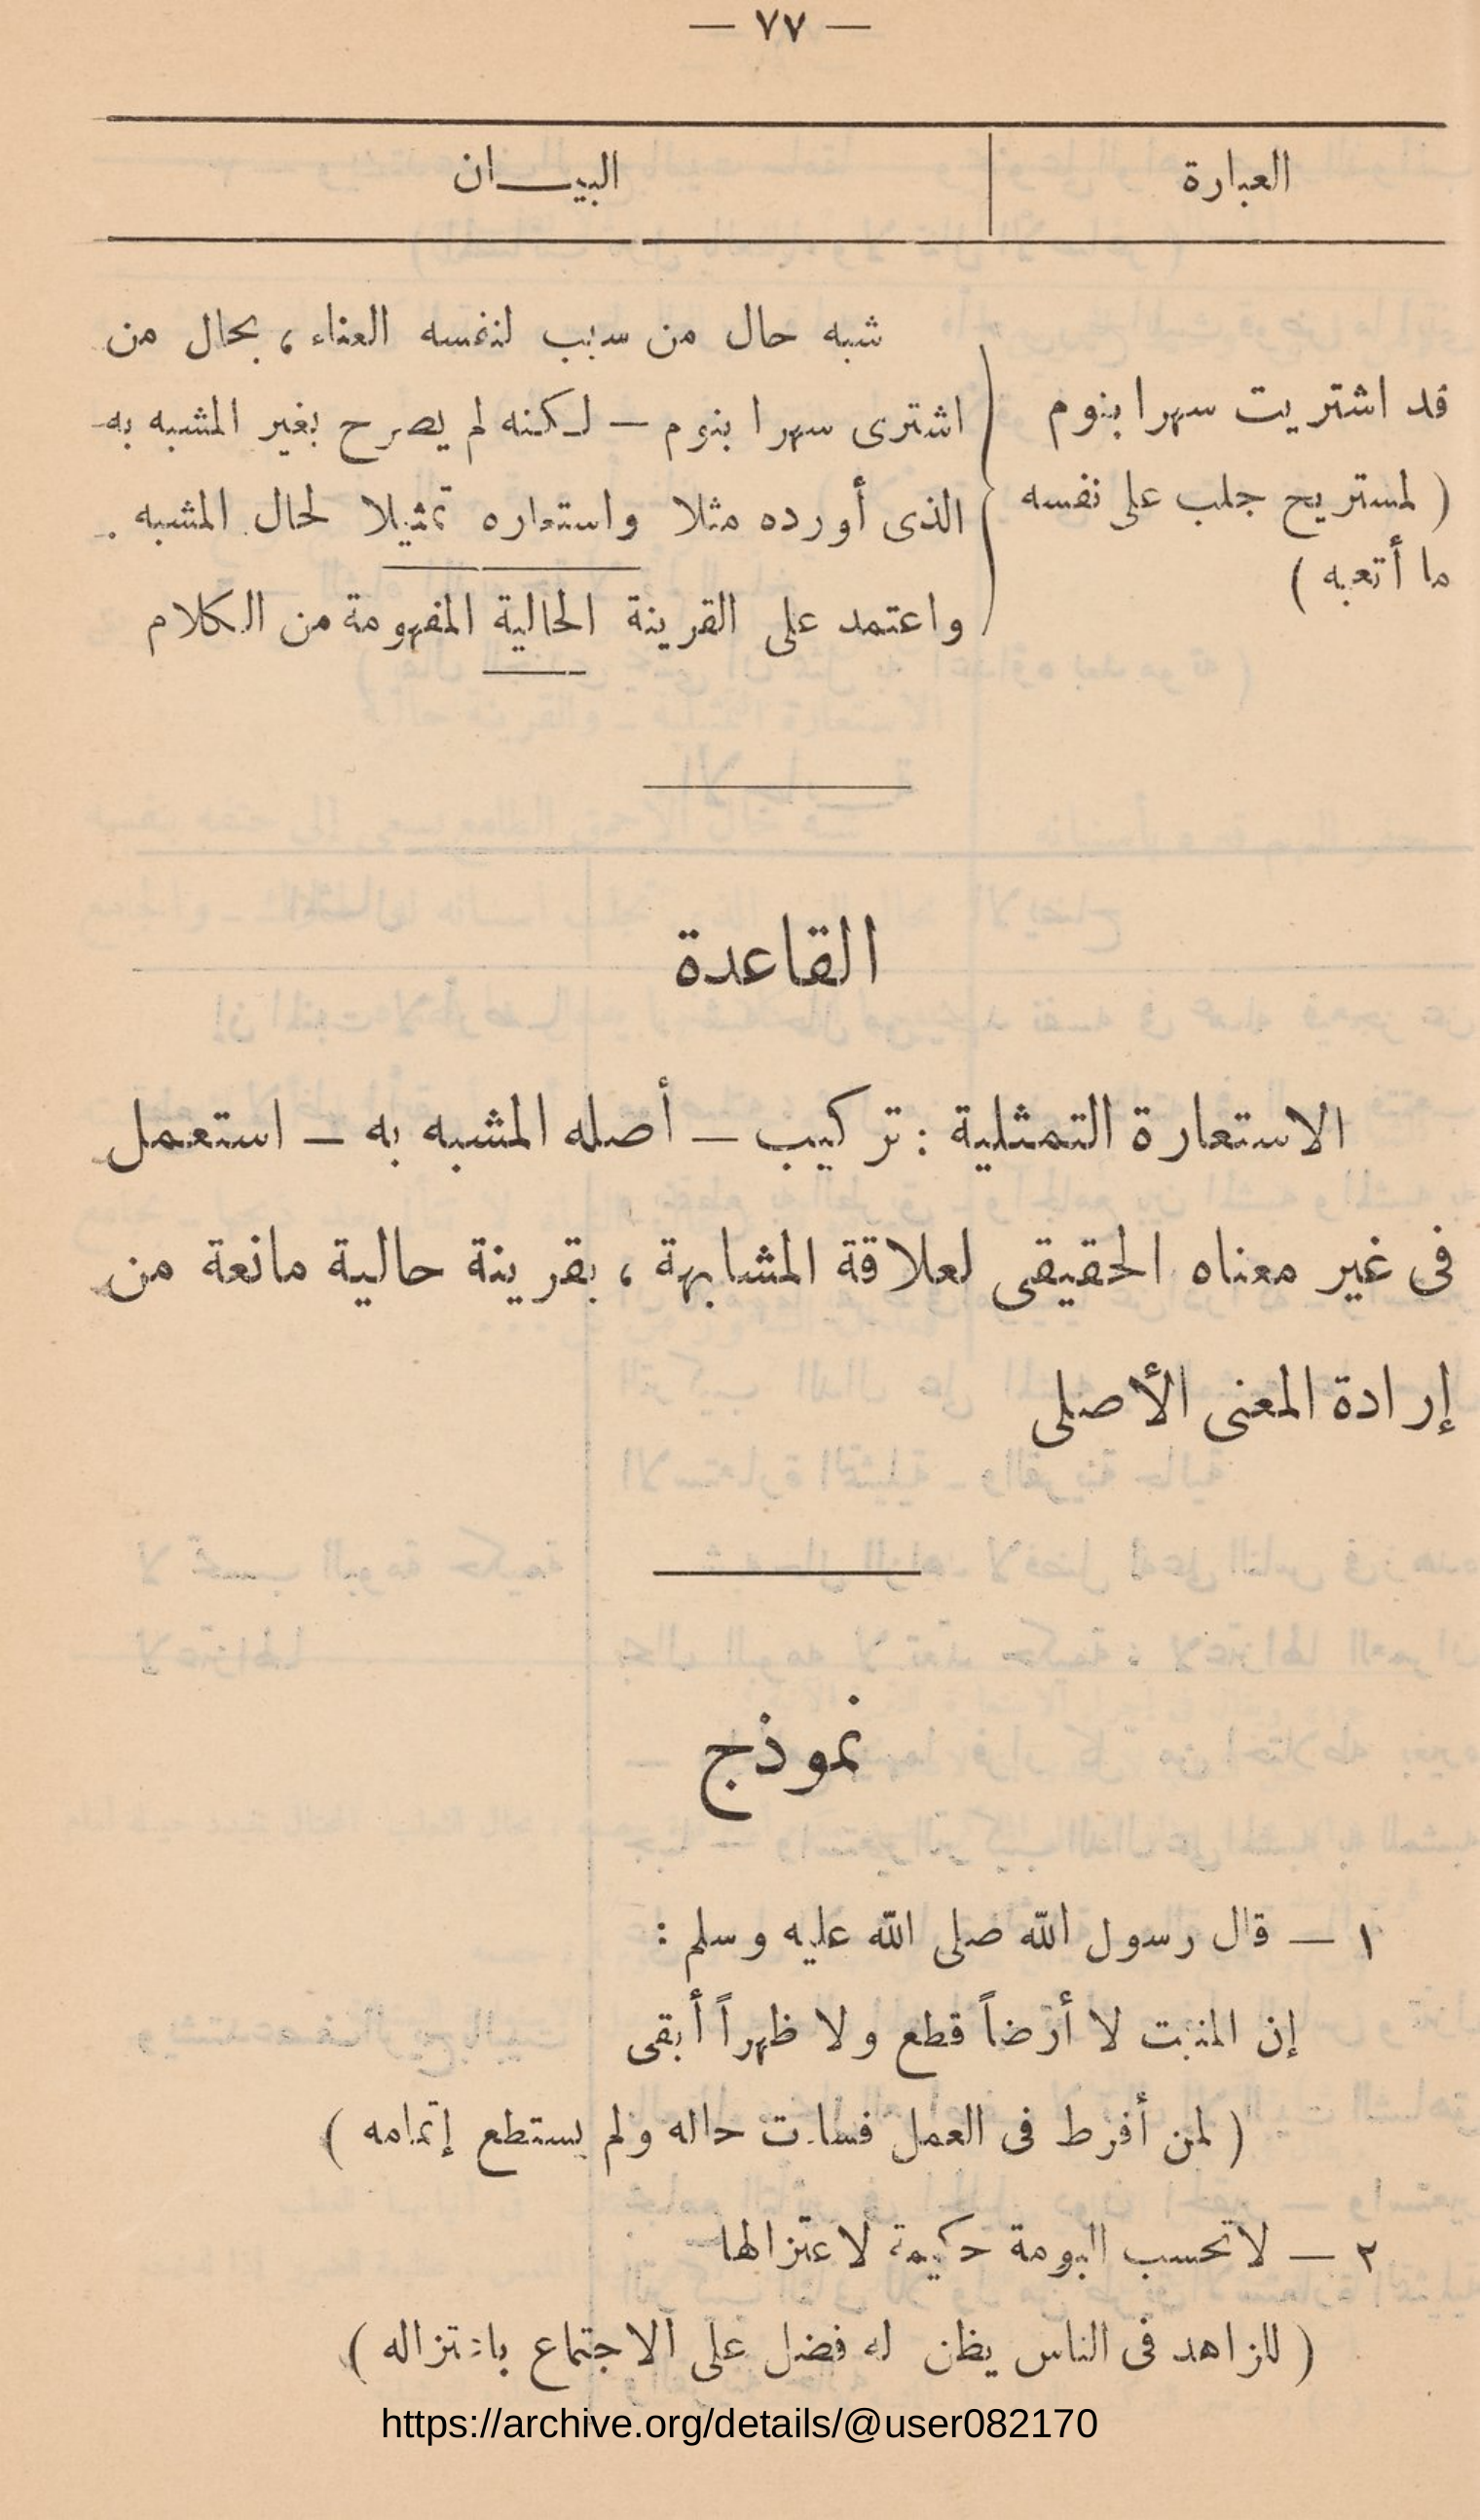 — ٧٧ —
العبارة
البيـــان
قد اشتريت سهرا بنوم
( لمستريح جلب على نفسه
ما أتعبه )
شبه حال من سبب لنفسه العناء ، بحال من
اشترى سهرا بنوم — لـكنه لم يصرح بغير المشبه به
الذى أورده مثلا واستعاره تمثيلا لحال المشبه .
واعتمد على القرينة الحالية المفهومة من الـكلام
القاعدة
الاستعارة التمثلية : تركيب — أصله المشبه به — استعمل
فى غير معناه الحقيقى لعلاقة المشابهة ، بقرينة حالية مانعة من
إرادة المعنى الأصلى
نموذج
١ — قال رسول الله صلى الله عليه وسلم :
إن المنبت لا أرضاً قطع ولا ظهراً أبقى
( لمن أفرط فى العمل فساءت حاله ولم يستطع إتمامه )
٢ — لا تحسب البومة حكيمة لاعتزالها
( للزاهد فى الناس يظن له فضل على الاجتماع باعتزاله )
https://archive.org/details/@user082170